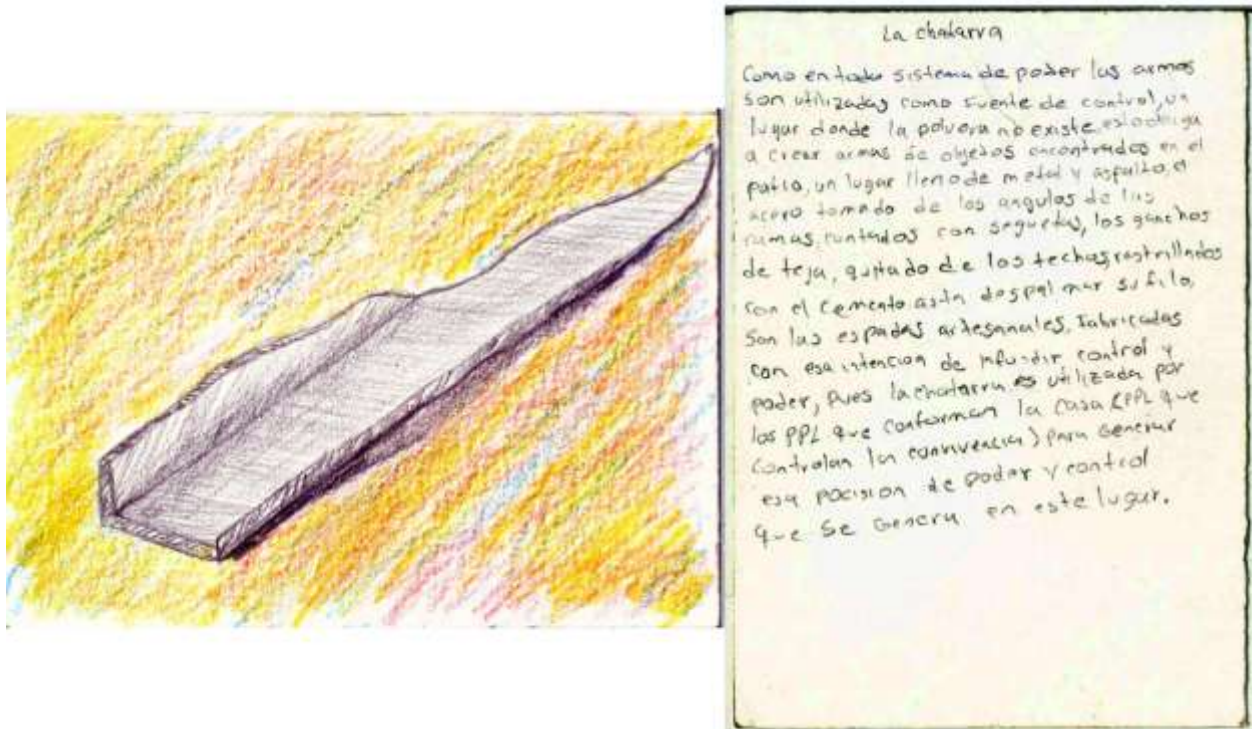 La chatarra
Como en todo sistema de poder las armas
son utilizadas como fuente de control, un
lugar donde la polvora no existe, esto obliga
a crear armas de objetos encontrados en el
patio, un lugar lleno de metal y aspalto, el
acero tomado de los angulos de las
camas, cortados con seguetas, los ganchos
de teja, quitado de los techos, rastrillados
con el cemento asta despalmar su filo,
Son las espadas artesanales, fabricadas
con esa intencion de infundir control y
poder, pues la chatarra es utilizada por
los PPL que conforman la casa (PPL que
controlan la convivencia) para Generar
esa pocision de poder y control
que se Genera en este lugar.